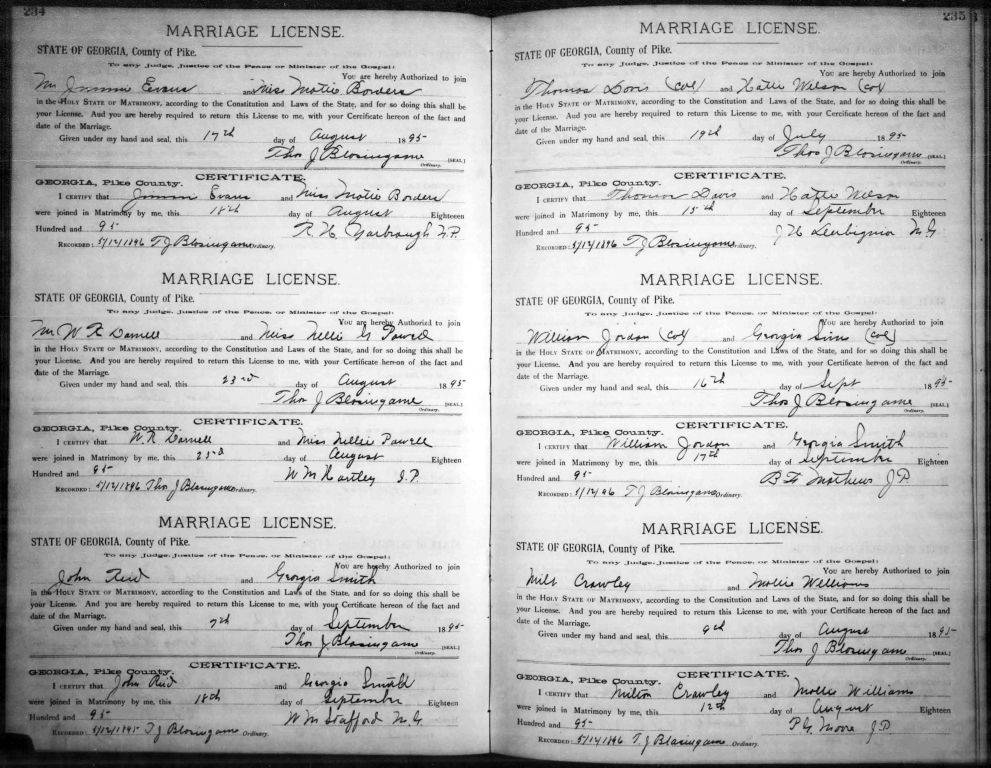 234
MARRIAGE LICENSE.
STATE OF GEORGIA, County of Pike.
To any Judge, Justice of the Peace or Minister of the Gospel:
You are hereby Authorized to join
Mr Jimmie Evans and Miss Matie Borders
in the HOLY STATE OF MATRIMONY, according to the Constitution and Laws of the State, and for so doing this shall be
your License. And you are hereby required to return this License to me, with your Certificate hereon of the fact and
date of the Marriage.
Given under my hand and seal, this 17th day of August 1895
Thos J Blasingame [SEAL]
Ordinary.
CERTIFICATE.
GEORGIA, Pike County.
I CERTIFY that Jimmie Evans and Miss Matie Borders
were joined in Matrimony by me, this 18th day of August Eighteen
Hundred and 95 R. H. Yarbrough N.P.
RECORDED: 5/12/1896 T J Blasingame Ordinary.
MARRIAGE LICENSE.
STATE OF GEORGIA, County of Pike.
To any Judge, Justice of the Peace, or Minister of the Gospel:
You are hereby Authorized to join
Mr W R Darnell and Miss Nellie G Powell
in the HOLY STATE OF MATRIMONY, according to the Constitution and Laws of the State, and for so doing this shall be
your License. And you are hereby required to return this License to me, with your Certificate hereon of the fact and
date of the Marriage.
Given under my hand and seal, this 23rd day of August 1895
Thos J Blasingame [SEAL]
Ordinary.
CERTIFICATE.
GEORGIA, Pike County.
I CERTIFY that W. R Darnell and Miss Nellie Powell
were joined in Matrimony by me, this 23rd day of August Eighteen
Hundred and 95 W M Hartley J.P.
RECORDED: 5/12/1896 Thos J Blasingame Ordinary.
MARRIAGE LICENSE.
STATE OF GEORGIA, County of Pike.
To any Judge, Justice of the Peace, or Minister of the Gospel:
You are hereby Authorized to join
John Reid and Georgia Smith
in the HOLY STATE OF MATRIMONY, according to the Constitution and Laws of the State, and for so doing this shall be
your License. And you are hereby required to return this License to me, with your Certificate hereon of the fact and
date of the Marriage.
Given under my hand and seal, this 7th day of September 1895
Thos J Blasingame [SEAL]
Ordinary.
CERTIFICATE.
GEORGIA, Pike County.
I CERTIFY that John Reid and Georgia
were joined in Matrimony by me, this 18th day of September Eighteen
Hundred and 95 W M Stafford M.G.
RECORDED: T J Blasingame Ordinary.
235
MARRIAGE LICENSE.
STATE OF GEORGIA, County of Pike.
To any Judge, Justice of the Peace or Minister of the Gospel:
You are hereby Authorized to join
Thomas (Col) and Hattie Wilson (Col)
in the HOLY STATE OF MATRIMONY, according to the Constitution and Laws of the State, and for so doing this shall be
your License. And you are hereby required to return this License to me, with your Certificate hereon of the fact and
date of the Marriage.
Given under my hand and seal, this 19th day of July 1895
Thos J Blasingame [SEAL]
Ordinary.
CERTIFICATE.
GEORGIA, Pike County.
I CERTIFY that Thomas Davis and Hattie Wilson
were joined in Matrimony by me, this 15th day of September Eighteen
Hundred and 95 J H M.G
RECORDED: 5/12/1896 T J Blasingame Ordinary.
MARRIAGE LICENSE.
STATE OF GEORGIA, County of Pike.
To any Judge, Justice of the Peace, or Minister of the Gospel:
You are hereby Authorized to join
William Jordan (Col) and Georgia Sims (Col)
in the HOLY STATE OF MATRIMONY, according to the Constitution and Laws of the State, and for so doing this shall be
your License. And you are hereby required to return this License to me, with your Certificate hereon of the fact and
date of the Marriage.
Given under my hand and seal, this 16th day of Sept 1895
Thos J Blasingame [SEAL]
Ordinary.
CERTIFICATE.
GEORGIA, Pike County.
I CERTIFY that William Jordan and Georgia Smith
were joined in Matrimony by me, this 17th day of September Eighteen
Hundred and 95 B F Mathews J P.
RECORDED: 5/12/96 T J Blasingame Ordinary.
MARRIAGE LICENSE.
STATE OF GEORGIA, County of Pike.
To any Judge, Justice of the Peace, or Minister of the Gospel:
You are hereby Authorized to join
Milt Crawley and Mollie Williams
in the HOLY STATE OF MATRIMONY, according to the Constitution and Laws of the State, and for so doing this shall be
your License. And you are hereby required to return this License to me, with your Certificate hereon of the fact and
date of the Marriage.
Given under my hand and seal, this 9th day of August 1895
Thos J Blasingame [SEAL]
Ordinary.
CERTIFICATE.
GEORGIA, Pike County.
I CERTIFY that Milton Crawley and Mollie Williams
were joined in Matrimony by me, this 12th day of August Eighteen
Hundred and 95 P. G. Moore J.P
RECORDED: 5/12/1896 T. J Blasingame Ordinary.